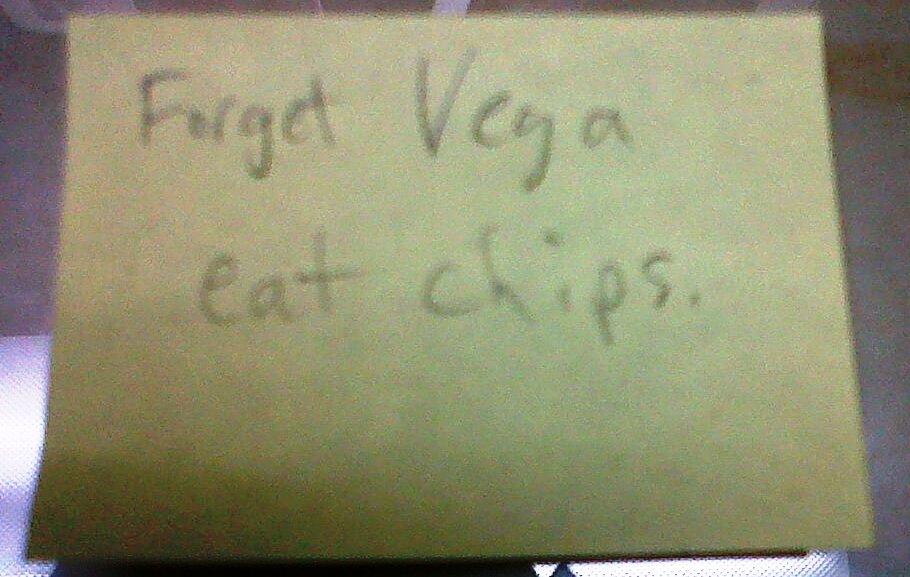 Forget Vega
eat chips.